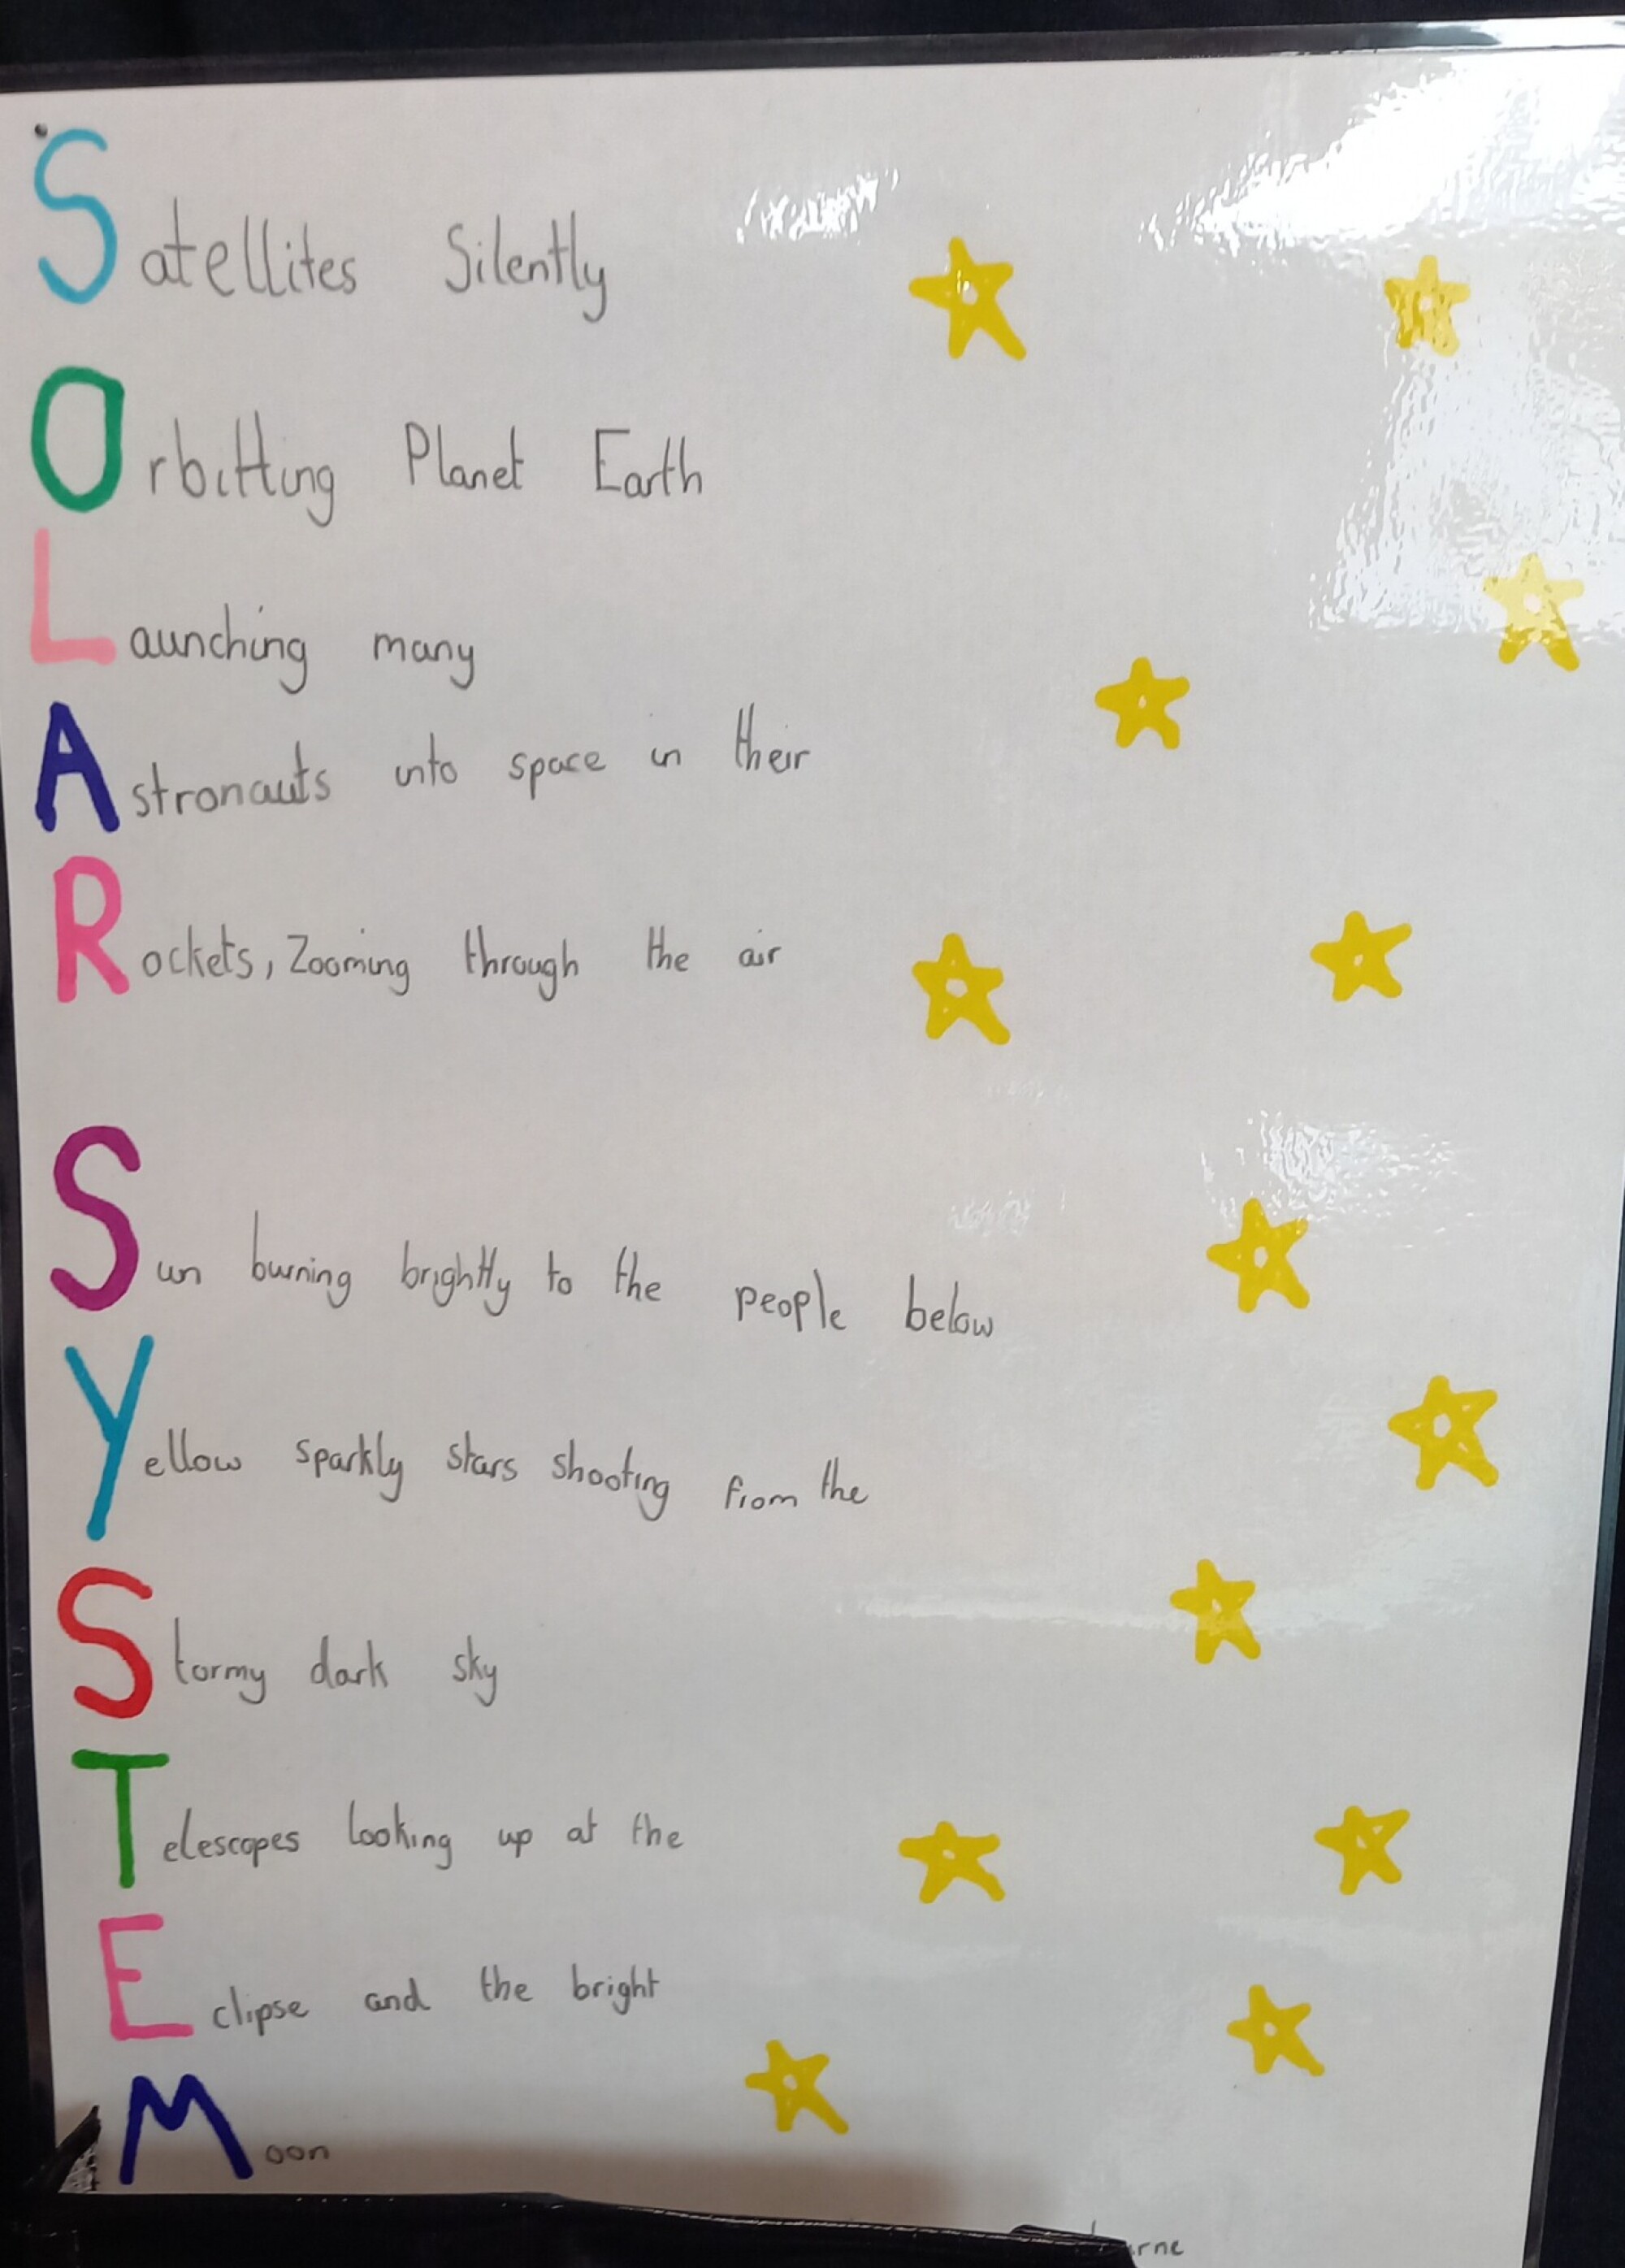 Satellites Silently
Orbitting Planet Earth
Launching many
Astronauts into space in their
Rockets, Zooming through the air
Sun burning brightly to the people below
Yellow sparkly stars shooting from the
Stormy dark sky
Telescopes looking up at the
Eclipse and the bright
Moon